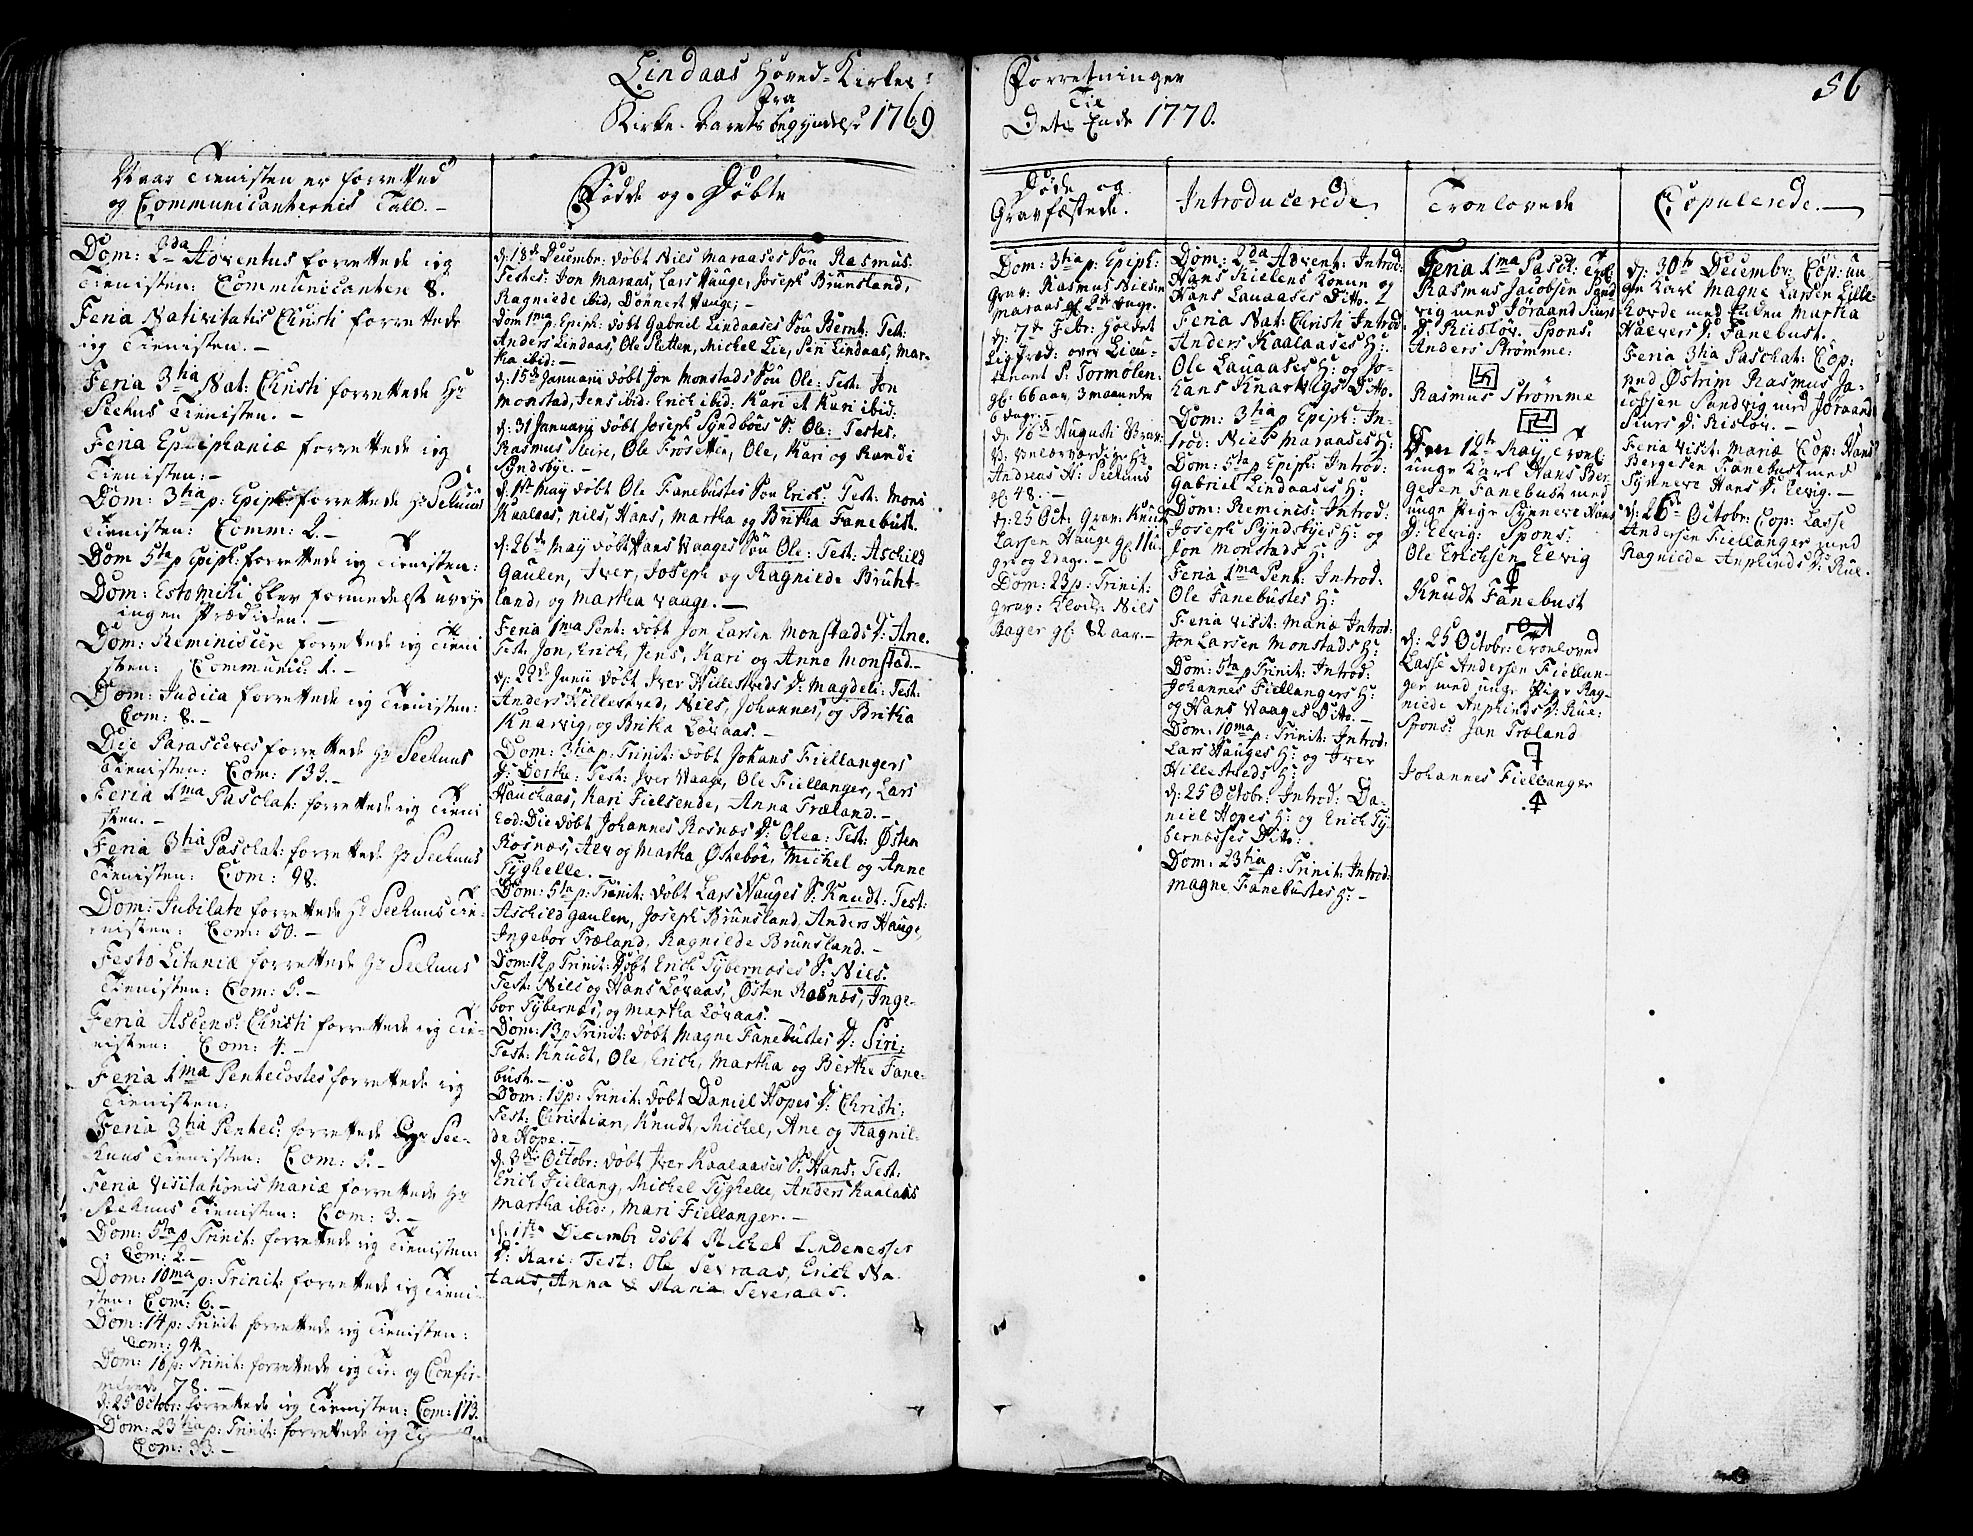 Lindaas Hoved-Kirkes
Fra
Kirke-Aarets begyndelse 1769
Forretninger
Til
Dets Ende 1770.
56
Naar Tienisten er forretted
og Communicanternis Tall.-
Dom: 2da Adventus forrettede ieg
Tienisten: Communicanter 8.
Feria Nativitatis Christi forrettede
ieg Tienisten.-
Feria 3tia Nat: Christi forrettede Hr
Seehus Tienisten.-
Feria Epiphaniæ forrettede ieg
Tienisten:-
Dom: 3tia p: Epiph: forrettede Hr Seehuus
Tienisten: Comm: 2.-
Dom 5ta p Epiph: forrettede ieg Tienisten:
Dom: Estomihi blev formedelst uveyr
ingen Prædiken.-
Dom: Reminiscere forrettede ieg Tieni
sten: Communic: 1.-
Dom: Judica forrettede ieg Tienisten:
Com: 8.-
Die Parasceves forrettede Hr Seehuus
Tienisten: Com: 133.-
Feria 1ma Paschat: forrettede ieg Tieni
sten.-
Feria 3tia Paschat: forrettede Hr Seehuus
Tienisten: Com: 98.
Dom: Jubilate forrettede Hr Seehuus Tie-
nisten: Com: 50.-
Festo Litaniæ forrettede Hr Seehuus
Tienisten: Com: 5.-
Feria Ascens: Christi forrettede ieg Tie-
nisten: Com: 4.-
Feria 1ma Pentecostes forrettede ieg
Tienisten:
Feria 3tia Pentec: forrettede Hr See-
huus Tienisten: Com: 5.-
Feria Visitationis Mariæ forrettede Hr
Seehuus Tienisten: Com: 3.-
Dom: 5ta p Trinit: forrettede ieg Tienisten:
Com: 2.-
Dom: 10ma p: Trinit: forrettede ieg Tieni-
sten: Com: 6.-
Dom: 14 p: Trinit forrettede ieg Tienisten:
Com: 94
Dom: 16 p: Trinit: forrettede ieg Tie: og Confir-
merede 78.-
d: 25 Octobr: forrettede ieg Tienisten: Com: 113.
Dom: 23tia p: Trinit: forrettede ieg
Com: 33.-
Fødde og Døbte
d: 18de Decembr: døbt Niels Maraases Søn Rasmus:
Testes: Jon Maraas, Lars Hauge, Joseph Brunsland,
Ragniede ibid, Donnert Hauge;-
Dom 1ma p: Epiph: døbt Gabriel Lindaases Søn Bernt: Test:
Anders Lindaas, Ole Sletten, Michel Lie, Siri Lindaas, Mar-
tha ibid:-
d: 15de Januarii døbt Jon Monstads Søn Ole: Test: Jon
Monstad, Jens ibid: Erich ibid: Kari et Kari ibid:
d: 31 Januarii døbt Joseph Syndsbøes S: Ole: Testes:
Rasmus Sleire, Ole Frosetter, Ole, Kari og Randi
Syndsbye.-
d: 1ste May døbt Ole Fanebustes Søn Erich: Test: Mons
Kaalaas, Niels, Hans, Martha og Britha Fanebust.
d: 26de May døbt Hans Vaages Søn Ole: Test: Aschild
Gaulen, Iver, Joseph og Ragnilde Brunt-
land, og Martha Vaage.-
Feria 1ma Pent: døbt Jon Larsen Monstads D: Ane.
Test: Jon, Erich, Jens, Kari og Anne Monstad.-
d: 22de Junii døbt Iver Hillesteds D: Magdeli: Test:
Anders Hillestved, Niels, Johannes, og Britha
Knarvig, og Britha Løvaas.-
Dom: 3tia p: Trinit: døbt Johans Fiellangers
D: Dorthe: Test: Iver Vaage, Ole Fiellanger, Lars
Hauchaas, Kari Fielsende, Anna Træland.-
Eod: Die døbt Johannes Rosnæs D: Olea: Test: Østen
Rosnæs, Alv og Martha, Østebøe, Michel og Anne
Tyghelle.-
Dom: 5ta p: Trinit: døbt Lars Hauges S: Knudt: Test:
Aschild Gaulen, Joseph Brunsland, Anders Hauge,
Ingebor Træland, Ragnilde Brunsland.-
Dom: 12 p Trinit: Døbt Erich Tybernæses S: Niels.
Test: Niels og Hans Løvaas, Østen Rosnæs, Inge-
bor Tybernæs, og Martha Løvaas.-
Dom: 13 p Trinit: døbt Magne Fanebustes D: Siri:
Test: Knudt, Ole, Erich, Martha og Berthe Fane-
bust.-
Dom: 15 p: Trinit: døbt Daniel Hopes D: Christi:
Test: Christian, Knudt, Michel, Ane og Ragnil-
de Hope.-
d: 3die Octobr: døbt Iver Kaalaases S: Hans: Test:
Erich Fiellang, Michel Tyghelle, Anders Kaalaas
Martha ibid:, Mari Fiellanger.-
d: 1ste Decembr døbt Michel Lindenesses
D: Kari: Test: Ole Sevraas, Erich Na
taas, Anna & Maria Severaas.
Døde og
Gravfæstede.
Dom: 3tia p: Epiph:
Grav: Rasmus Nielsen
Maraas gl: 2de Dage.
d: 7de Febr: holdet
Ligpræd: over Lieu-
tenant S: Tormølen.
gl: 66 aar, 3 maaneder
6 dage.-
d: 16de Augusti Grav:
V: Velærværdige Hr
Andreas H: Seehuus
gl: 48.-
d: 25 Oct: Grav: Knud
Larsen Hauge gl: 11 U-
ger og 2 dage.-
Dom: 23 p: Trinit:
grav: Niels
Bager gl: 82 aar.-
Introducerede
Dom: 2da Advent: Introd:
Hans Kielens Konne og
Hans Lauaases Ditto.
Feria Nat: Christi Introd
Anders Kaalaases H:
Ole Lauaases H: og Jo-
hans Knarvigs Ditto.
Dom: 3tia p Epiph: In-
trod: Niels Maraases H:
Dom: 5ta p Epiph: Introd:
Gabriel Lindaases H:
Dom: Reminis: Introd:
Joseph Syndsbyes H: og
Jon Monstads H:
Feria 1ma Pent: Introd:
Ole Fanebustes H:
Feria Visit: Mariæ Introd:
Jon Larsen Monstads H:
Dom: 5ta p Trinit: Introd:
Johannes Fiellangers H:
og Hans Vaages Ditto.-
Dom: 10ma p: Trinit: Introd:
Lars Hauges H: og Iver
Hillesteds H:
d: 25 Octobr: Introd: Da-
niel Hopes H: og Erich Ty-
bernæsses Ditto:
Dom: 23tia p: Trinit: Introd:
Magne Fanebustes H:-
Troelovede
Feria 1ma Pasch: Troel:
Rasmus Jacobsen Sand
vig med Jøraand Siurs
D: Risløv. Spons:
Anders Strømme:
Rasmus Strømme
Den 12te May Troel:
unge Karl Hans Ber-
gesen Fanebust med
unge Pige Synneve Hans
D: Elvig: Spons:
Ole Erichsen Elvig
Knudt Fanebust
d: 25 Octobr: Troeloved
Lasse Andersen Fiellan-
ger med unge Pige Rag-
niede Anphinds D: Rue:
Spons: Jan Træland
Johannes Fiellanger
Copulerede.-
d: 30te Decembr: Cop: un
ge Karl Magne Larsen Lille-
hovde med Enken Martha
Halvers D: Fanebust.
Feria 3tia Paschat: Cop:
med Østrim Rasmus Ja-
cobsen Sandvig med Jøraand
Siurs D: Risløv.-
Feria Visit: Mariæ Cop: Hans
Bergesen Fanebust med
Synneve Hans D: Elvig.-
d: 26de Octobr: Cop: Lasse
Andersen Fiellanger med
Ragniede Anphinds D: Rue.